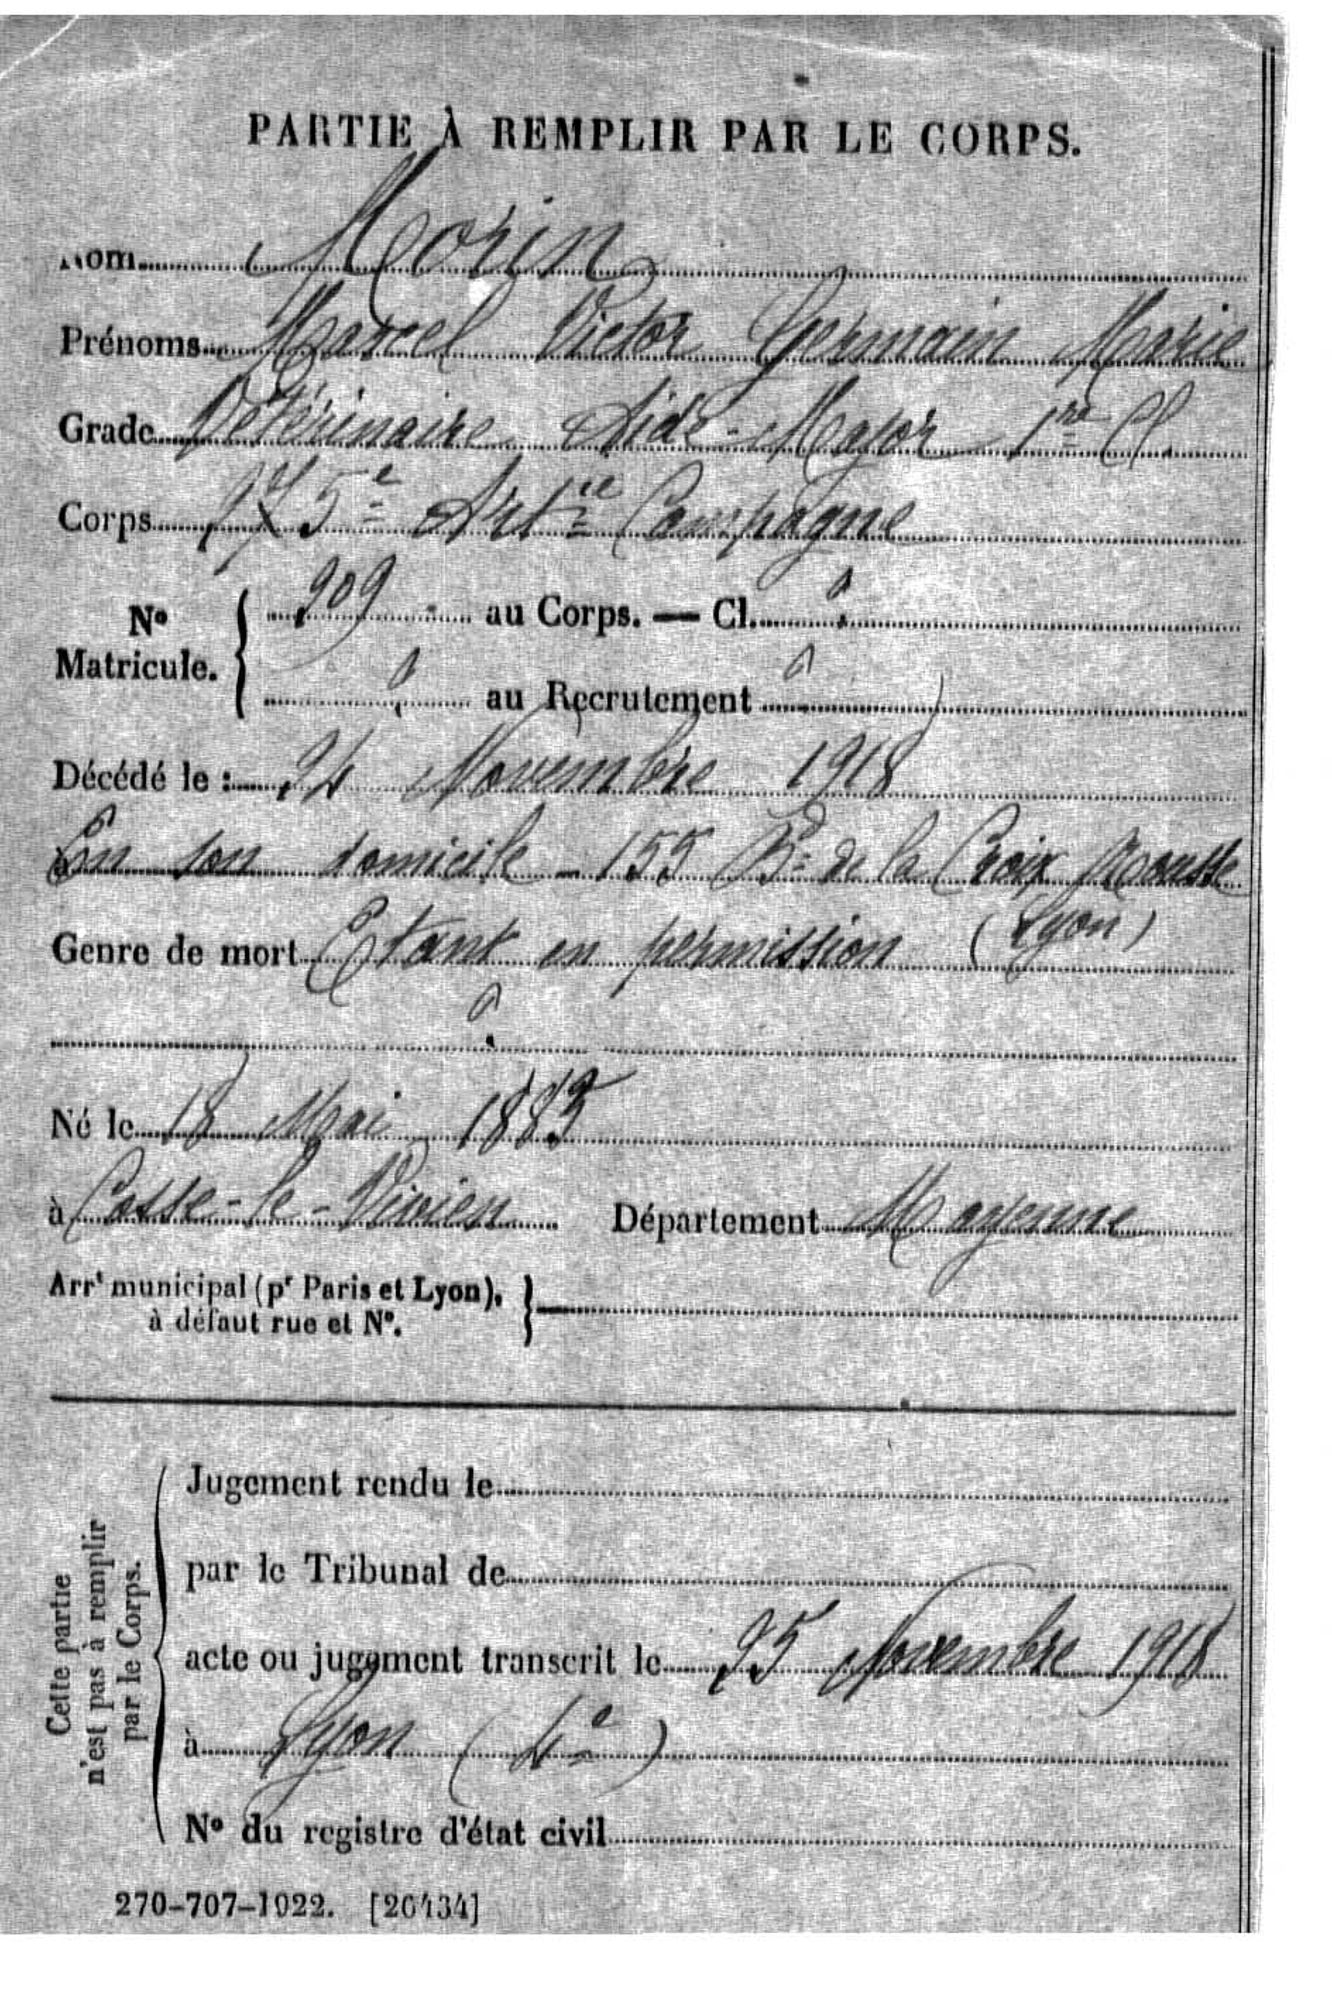 PARTIE À REMPLIR PAR LE CORPS.
Nom Morin
Prénoms Marcel Victor Germain Marie
Grade Vétérinaire Aide-Major 1re Cl.
Corps 175e Artie Campagne
No Matricule. { 909 au Corps. — Cl.
au Recrutement
Décédé le : 24 Novembre 1918
à En son domicile - 155 Bd de la Croix Rousse
(Lyon)
Genre de mort Etant en permission
Né le 18 Mai 1883
à Cosse-le-Vivien Département Mayenne
Arrt municipal (pr Paris et Lyon), à défaut rue et No. }
Cette partie n'est pas à remplir par le Corps.
Jugement rendu le
par le Tribunal de
acte ou jugement transcrit le 25 Novembre 1918
à Lyon (4e)
No du registre d'état civil
270-707-1922. [26434]